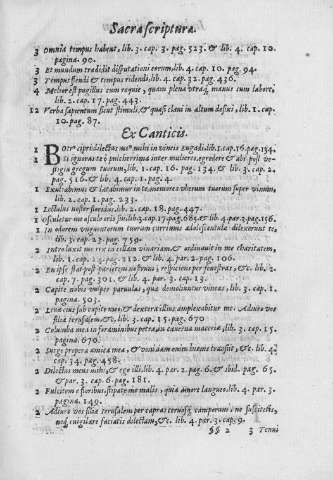 Sacra scriptura.
3 omnia tempus habent, lib. 3. cap. 3. pag. 523. & lib. 4. cap. 10.
pagina. 90.
3 Et mundum tradidit disputationi eorum, lib. 4. cap. 10. pag. 94.
3 Tempus flendi & tempus ridendi, lib. 4. cap. 32. pag. 436.
4 Melior est pugillus cum requie, quam plena utraq; manus cum labore,
lib. 2. cap. 17. pag. 443.
12 Verba sapientum sicut stimuli, & quasi claui in altum defixi, lib. 1. cap.
10. pag. 87.
Ex Canticis.
1 Botr⁹ cipri dilectus me⁹ mihi in vineis engadi, lib. 1. cap. 16. pag. 154.
1 Si ignoras te ò pulcherrima inter mulieres, egredere & abi post ve-
stigia gregum tuorum, lib. 1. cap. 16. pag. 134. & lib. 3. cap. 2.
pag. 516. & lib. 4. cap. 1. pag. 4.
1 Exultabimus & lætabimur in te, memores vberum tuorum super vinum,
lib. 2. cap. 1. pag. 223.
1 Lectulus noster floridus, lib. 2. cap. 18. pag. 447.
1 Osculetur me osculo oris sui, lib. 3. cap. 17. pag. 685. & lib. 4. par. 3. pag. 156.
1 In odorem vnguentorum tuorum currimus adolescentulæ dilexerunt te,
lib. 3. cap. 23. pag. 759.
2 Introduxit me rex in cellam vinariam, & ordinauit in me charitatem,
lib. 1. cap. 24. pag. 212. & lib. 4. par. 2. pag. 106.
2 En ipse stat post parietem nostrum, respiciens per fenestras, &c. lib. 2.
cap. 7. pag. 301. & lib. 4. par. 3. cap. 13.
2 Capite nobis vulpes paruulas, quæ demoliuntur vineas, lib. 3. cap. 1.
pagina. 503.
2 Leua eius sub capite meo, & dextera illius amplexabitur me. Adiuro vos
filiæ Ierusalem, &c. lib. 3. cap. 15. pag. 670.
2 Columba mea in foraminibus petræ, in cauerna maceriæ, lib. 3. cap. 15.
pagina. 670.
2 Surge propera amica mea, & veni iam enim hiems transijt, &c. lib. 4.
cap. 34. pag. 458.
2 Dilectus meus mihi, & ego illi, lib. 4. par. 2. pag. 6. & ibid. pag. 65.
& par. 3. cap. 6. pag. 181.
2 Fulcite me floribus, stipate me malis, quia amore langueo, lib. 4. par. 3.
pagina. 149.
2 Adiuro vos filiæ Ierusalem per capreas ceruosq; camporum, ne suscitetis,
neq; euigilare faciatis dilectam, &c. lib. 4. par. 3. cap. 9.
§§ 2 3 Tenui